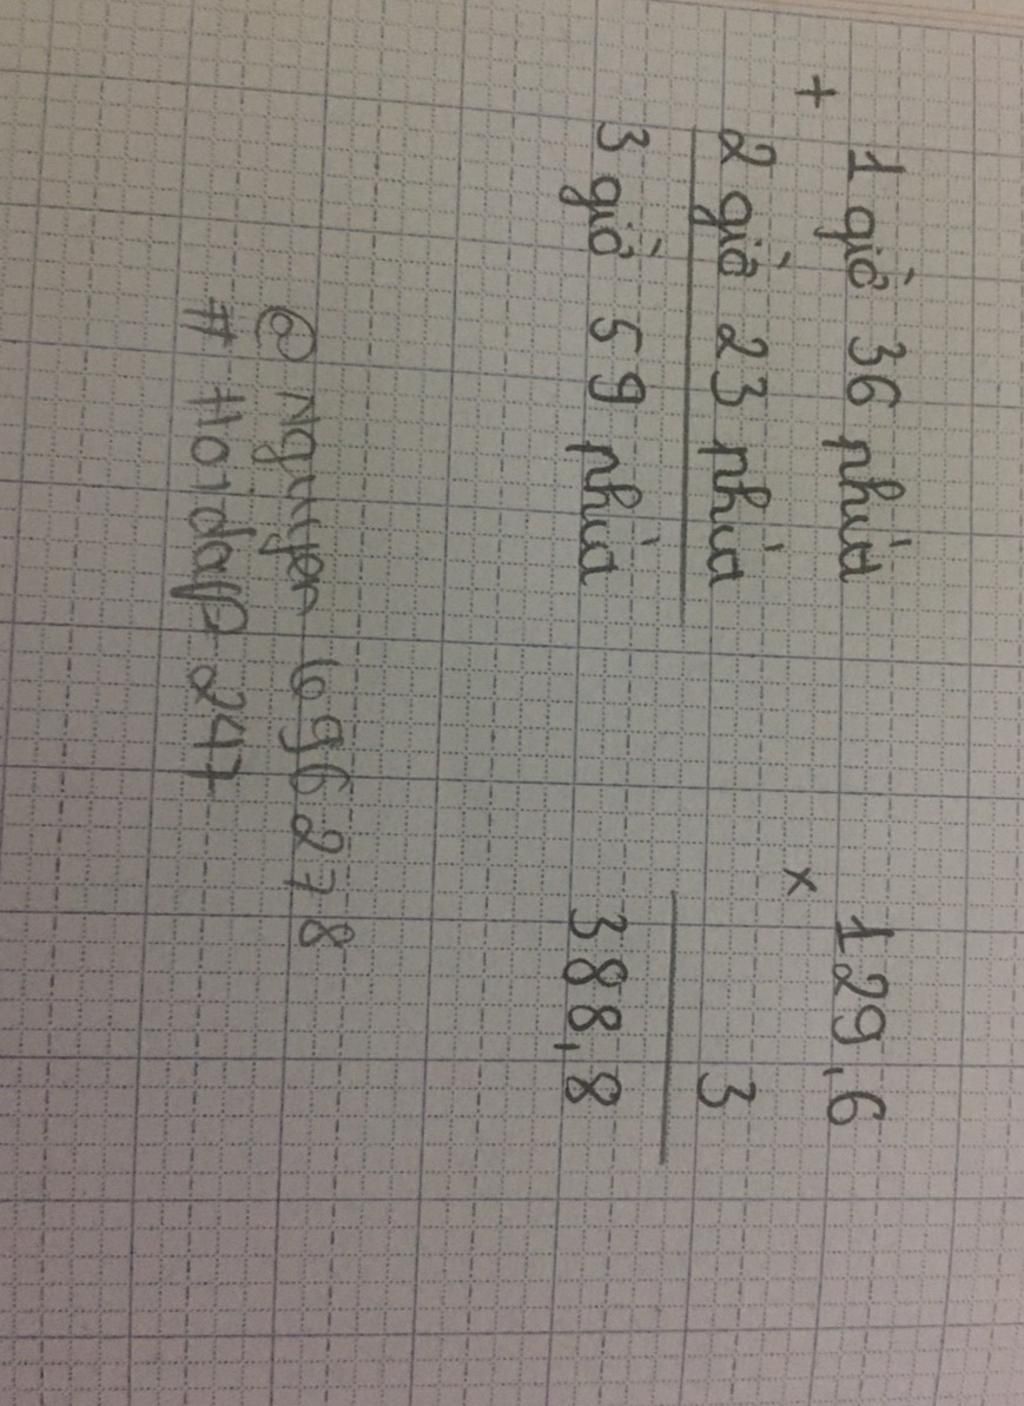 + 1 giờ 36 phút
2 giờ 23 phút
3 giờ 59 phút
× 129,6
3
388,8
@ nguyen 696278
# Hoidap 247